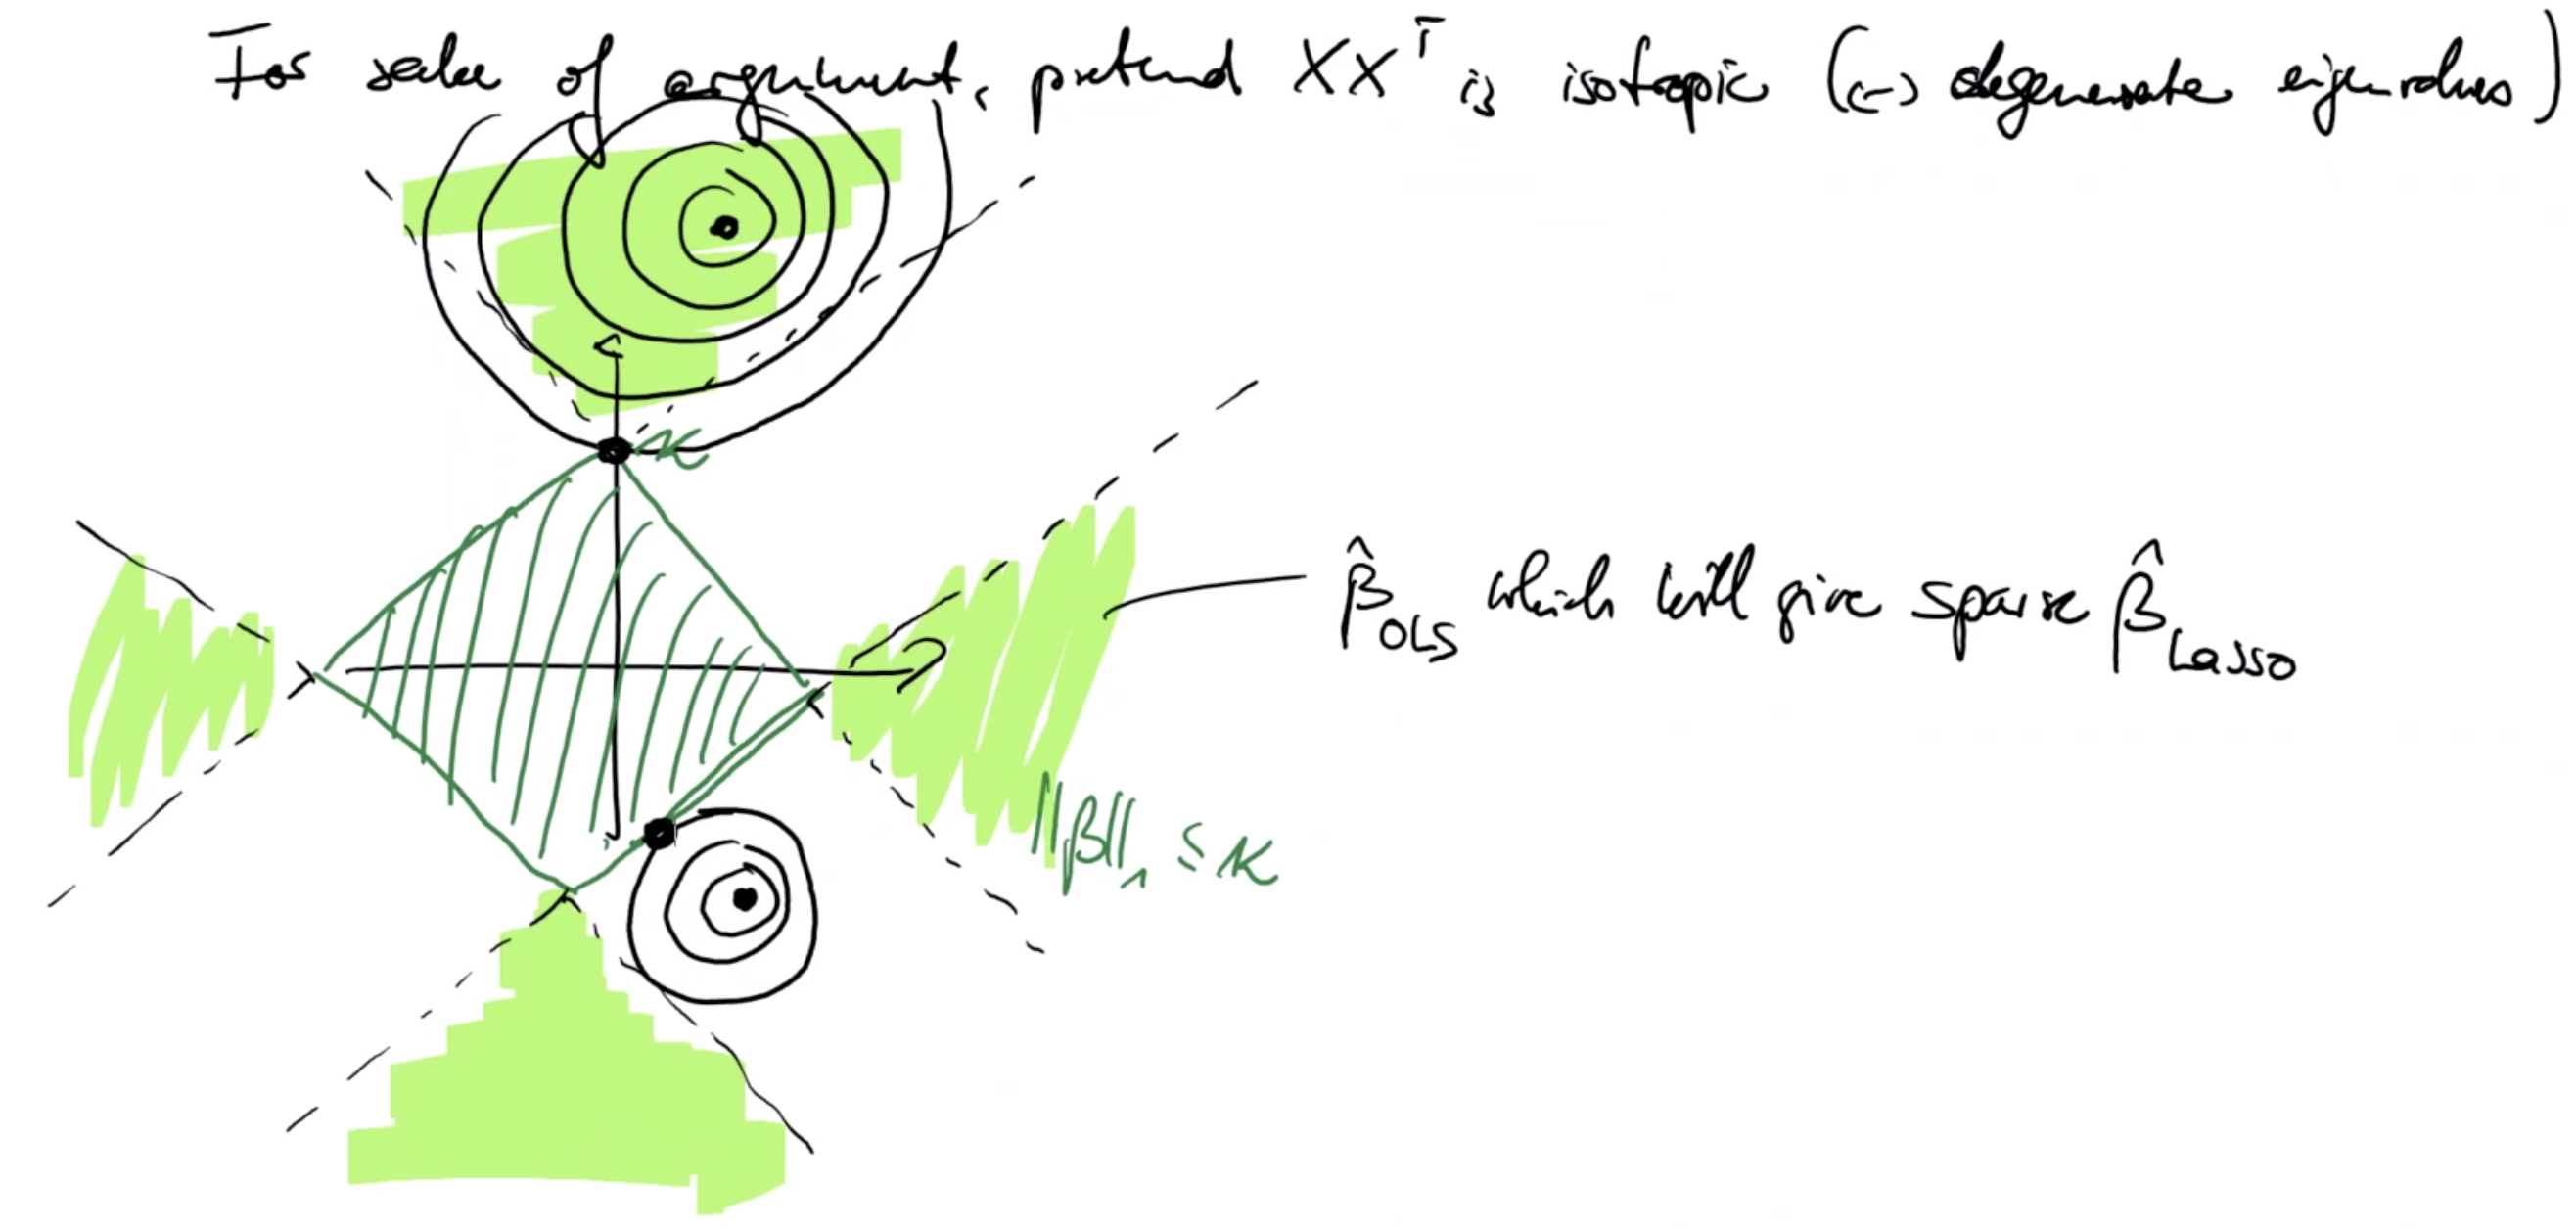 For sake of argument, pretend XXᵀ is isotropic (↔ degenerate eigenvalues)
K
β̂_OLS which will give sparse β̂_Lasso
‖β‖₁ ≤ K